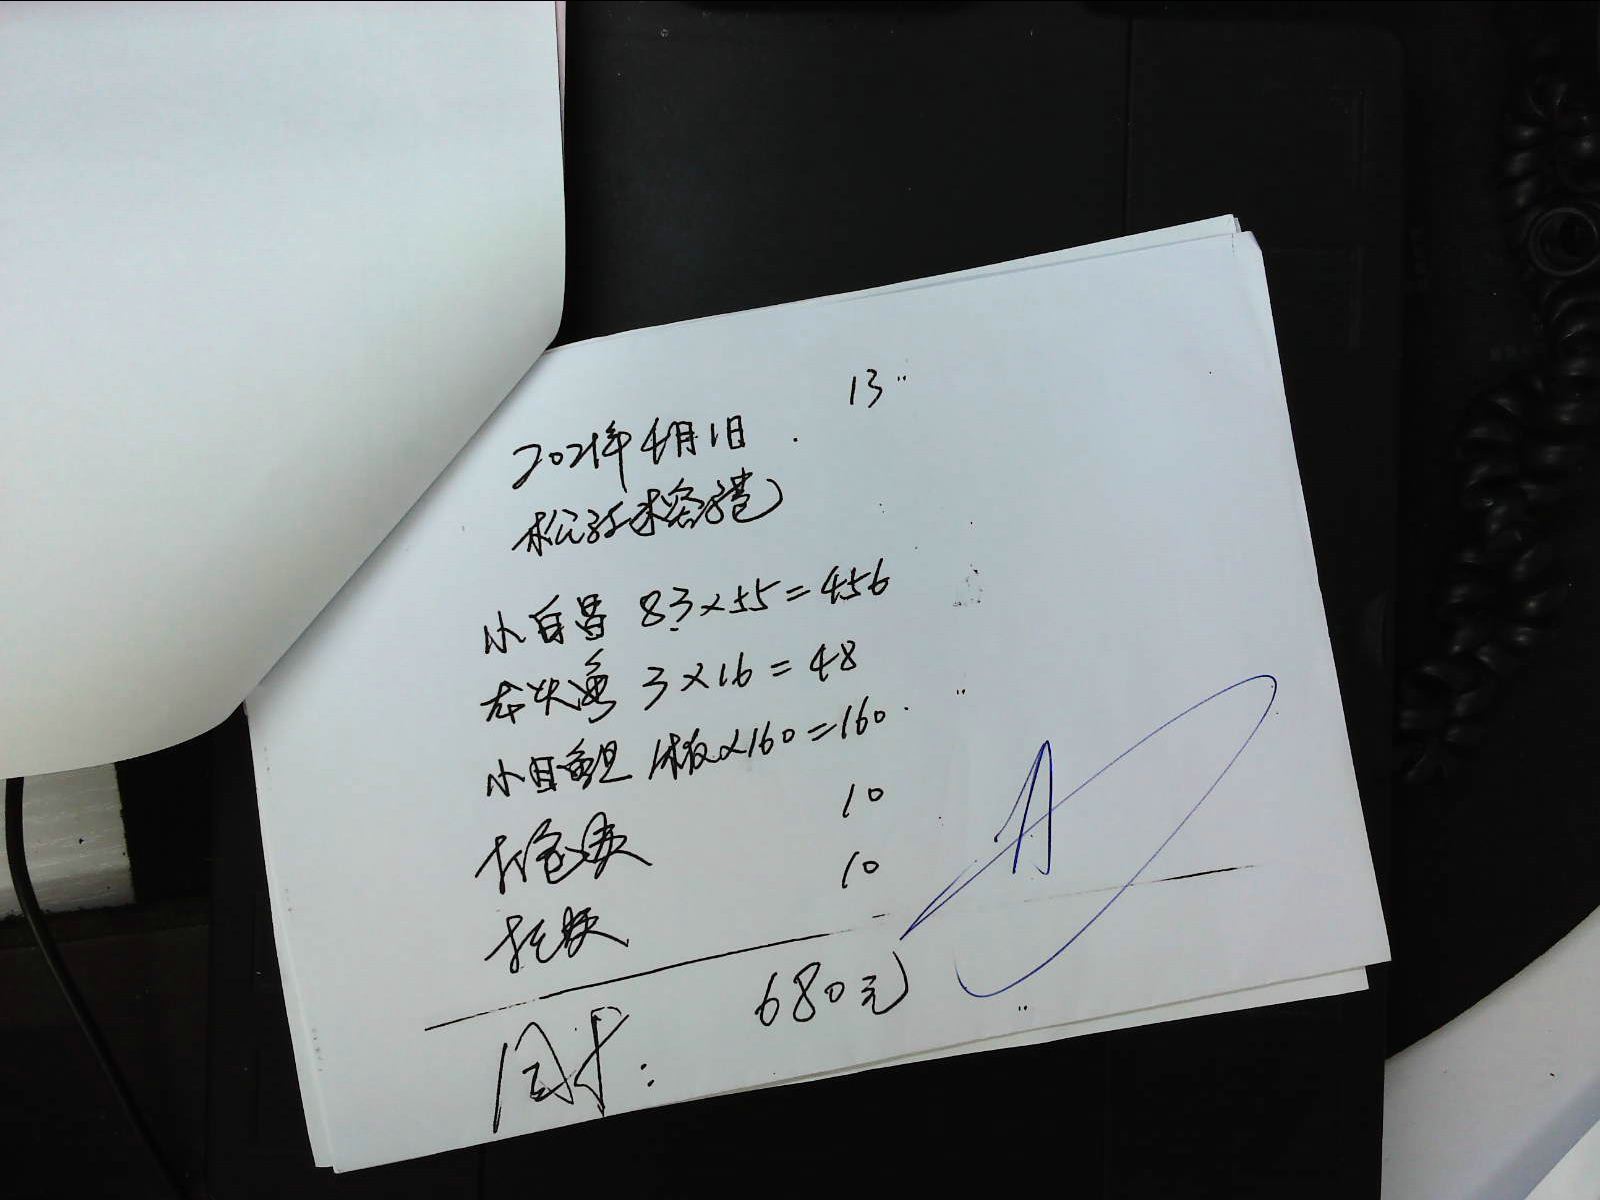 13
2021年4月1日
小白昌 8.3×55=456
龙头鱼 3×16=48
小目鱿 1板×160=160
打包费 10
托费 10
合计: 680元
A